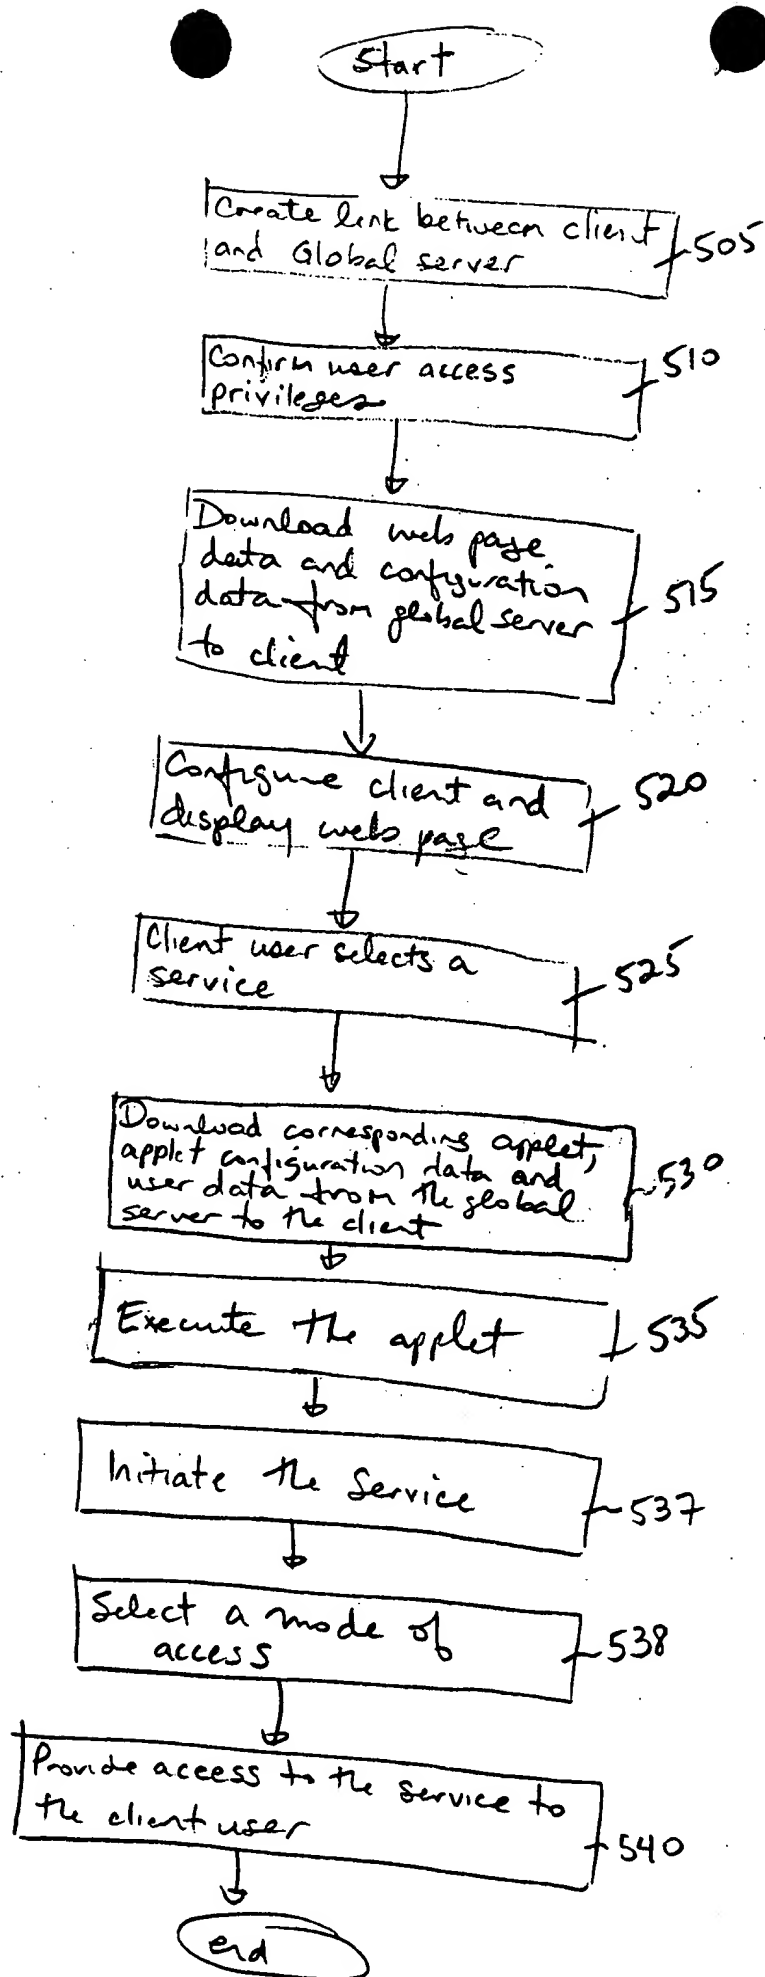 Start
Create link between client
and Global server
505
Confirm user access
privileges
510
Download web page
data and configuration
data from global server
to client
515
Configure client and
display web page
520
Client user selects a
service
525
Download corresponding applet,
applet configuration data and
user data from the global
server to the client
530
Execute the applet
535
Initiate the Service
537
Select a mode of
access
538
Provide access to the service to
the client user
540
end